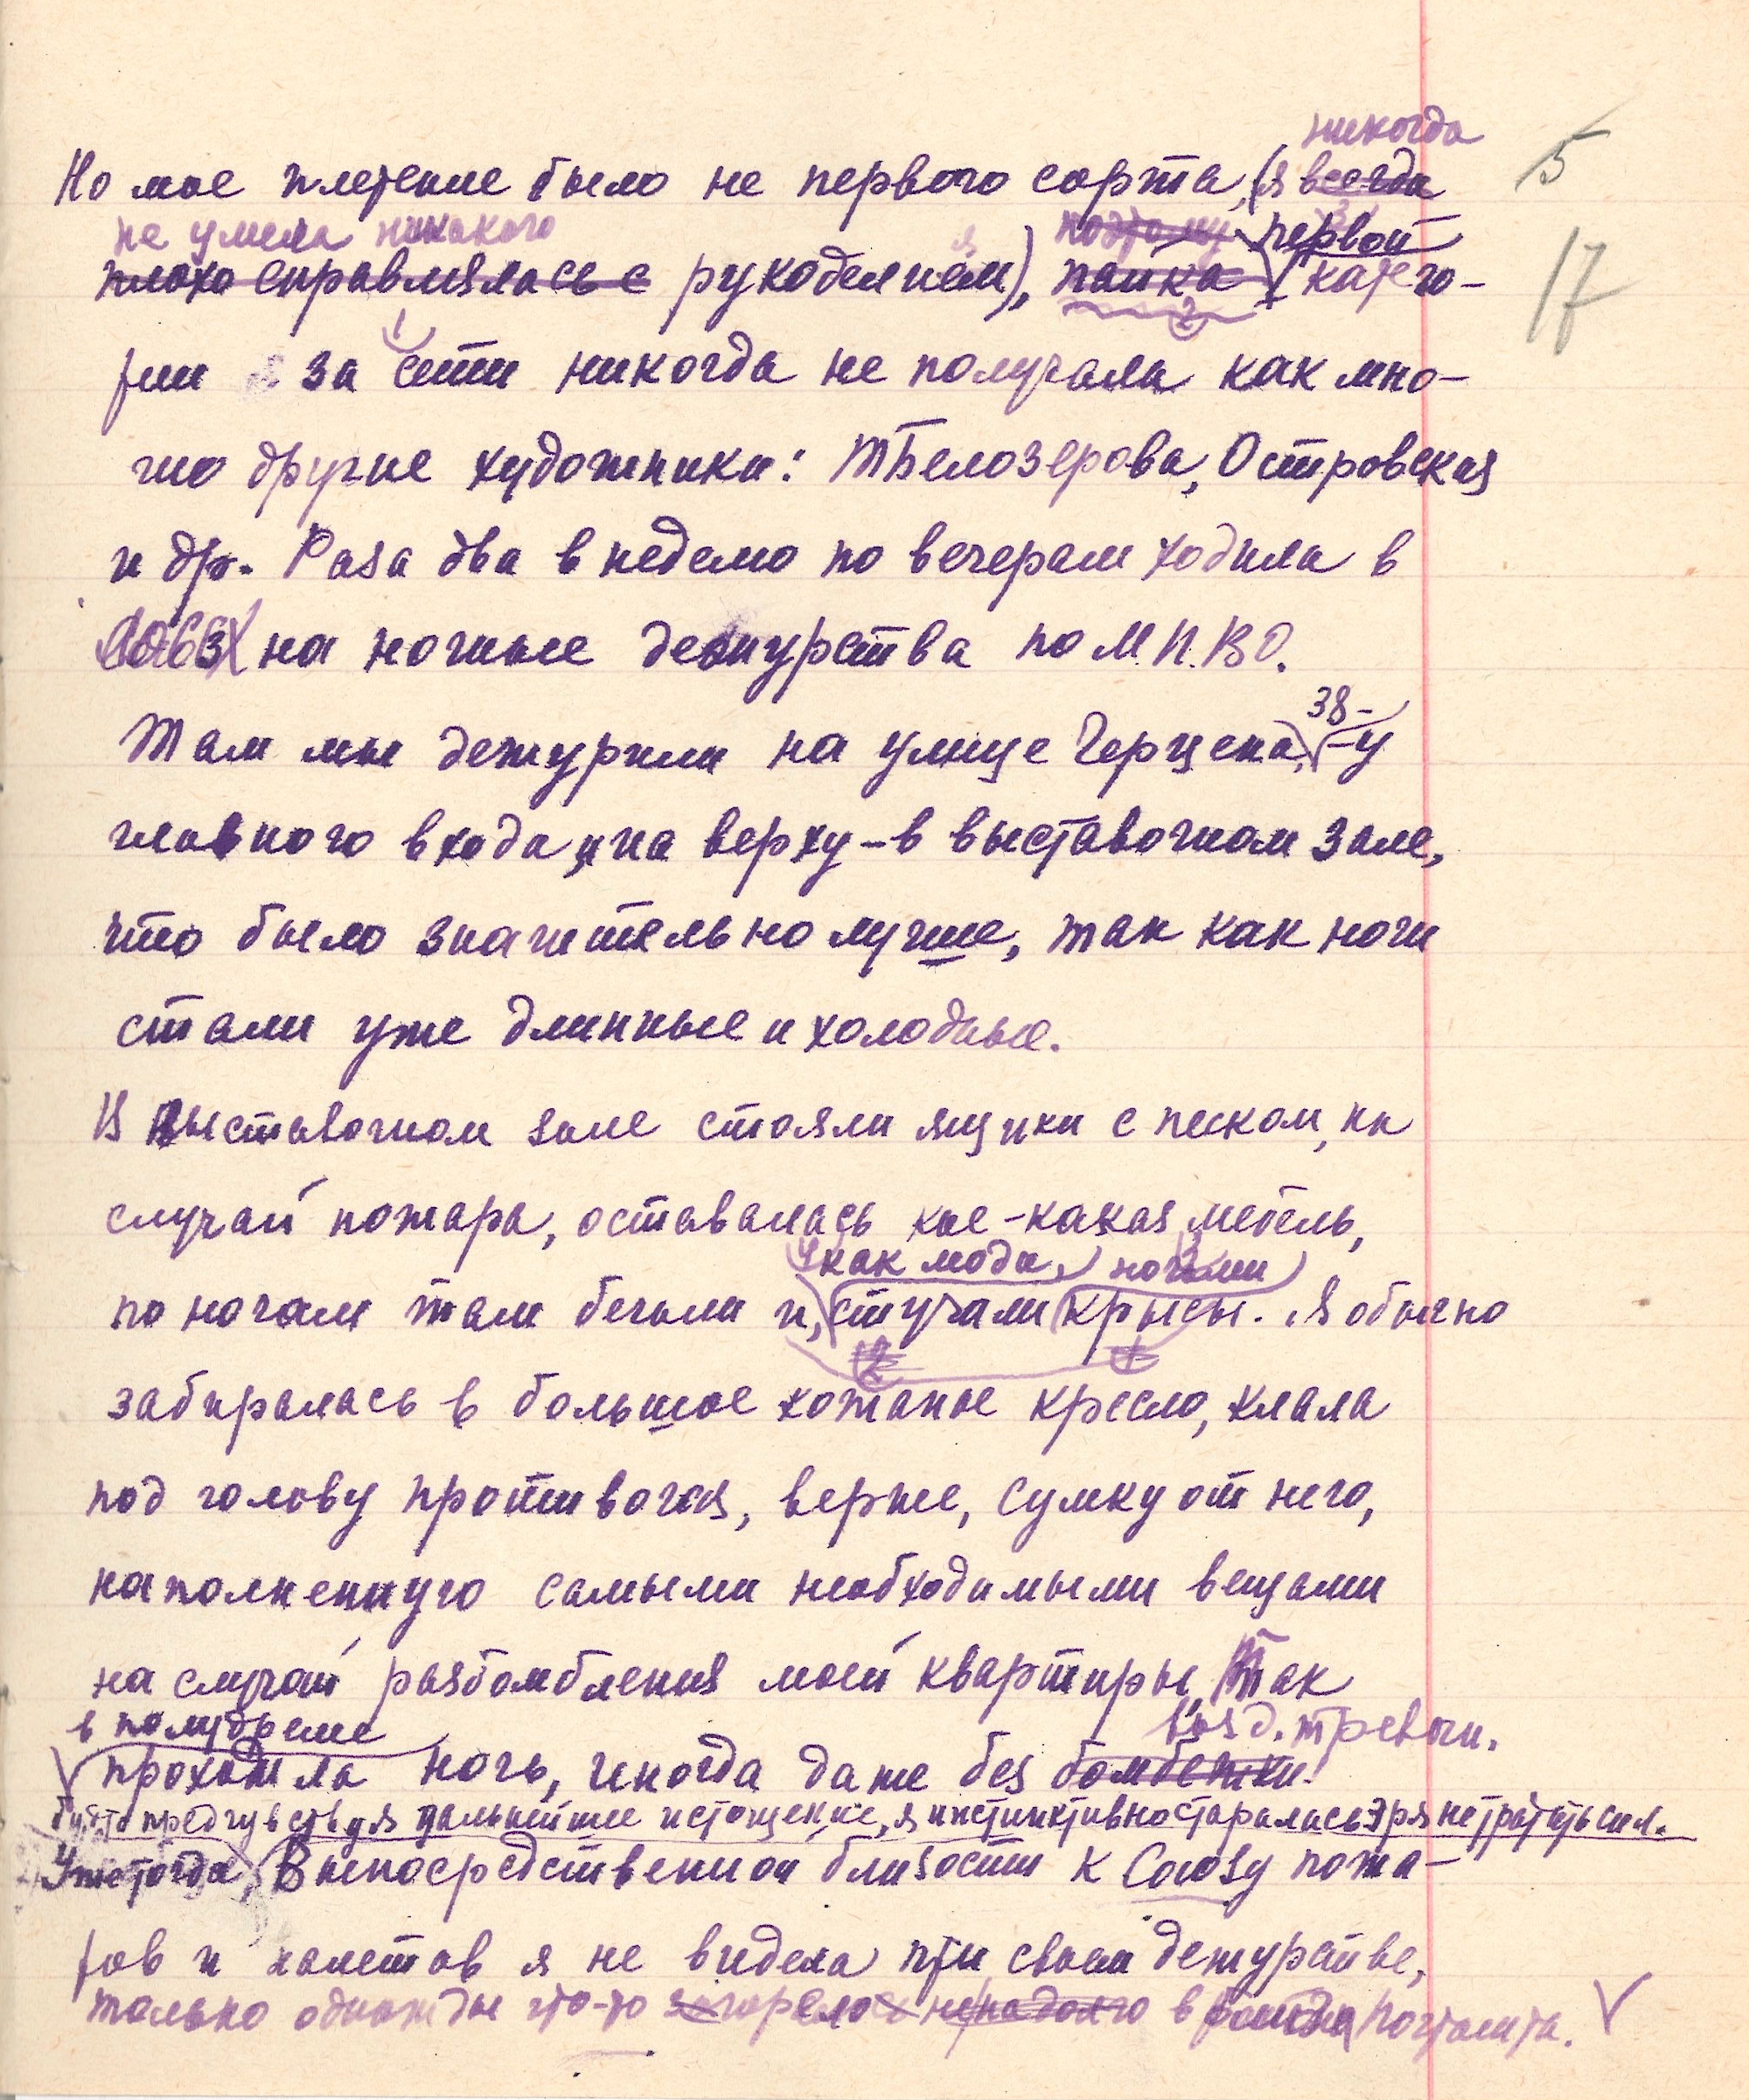 никогда
5
Но мое плетение было не первого сорта, (я всегда
не умела никакого поэтому первой
17
плохо справлялась с рукоделием), пайка катего-
1 2
рии за сети никогда не получала как мно-
гие другие художники: Т Белозерова, Островская
и др. Раза два в неделю по вечерам ходила в
Союз на ночные дежурства по М.П.ВО.
38-
Там мы дежурили на улице Герцена, - у
главного входа и на верху - в выставочном зале,
что было значительно лучше, так как ночи
стали уже длинные и холодные.
В выставочном зале стояли ящики с песком, на
случай пожара, оставалась кое-какая мебель,
как люди, ночами
по ночам там бегали и, стучали крысы. Я обычно
2 1
забиралась в большое кожаное кресло, клала
под голову противогаз, верне, сумку от него,
наполненную самыми необходимыми вещами
на случай разбомбления моей квартиры. Так
в полудреме возд. тревоги.
проходила ночь, иногда даже без бомбежки!
будто предчувствуя дальнейшее истощение, я инстинктивно старалась зря не тратить сил.
Уже тогда, В непосредственной близости к Союзу пожа-
ров и налетов я не видела при своем дежурстве,
только однажды что-то загорелось ненадолго в районе почтамта.